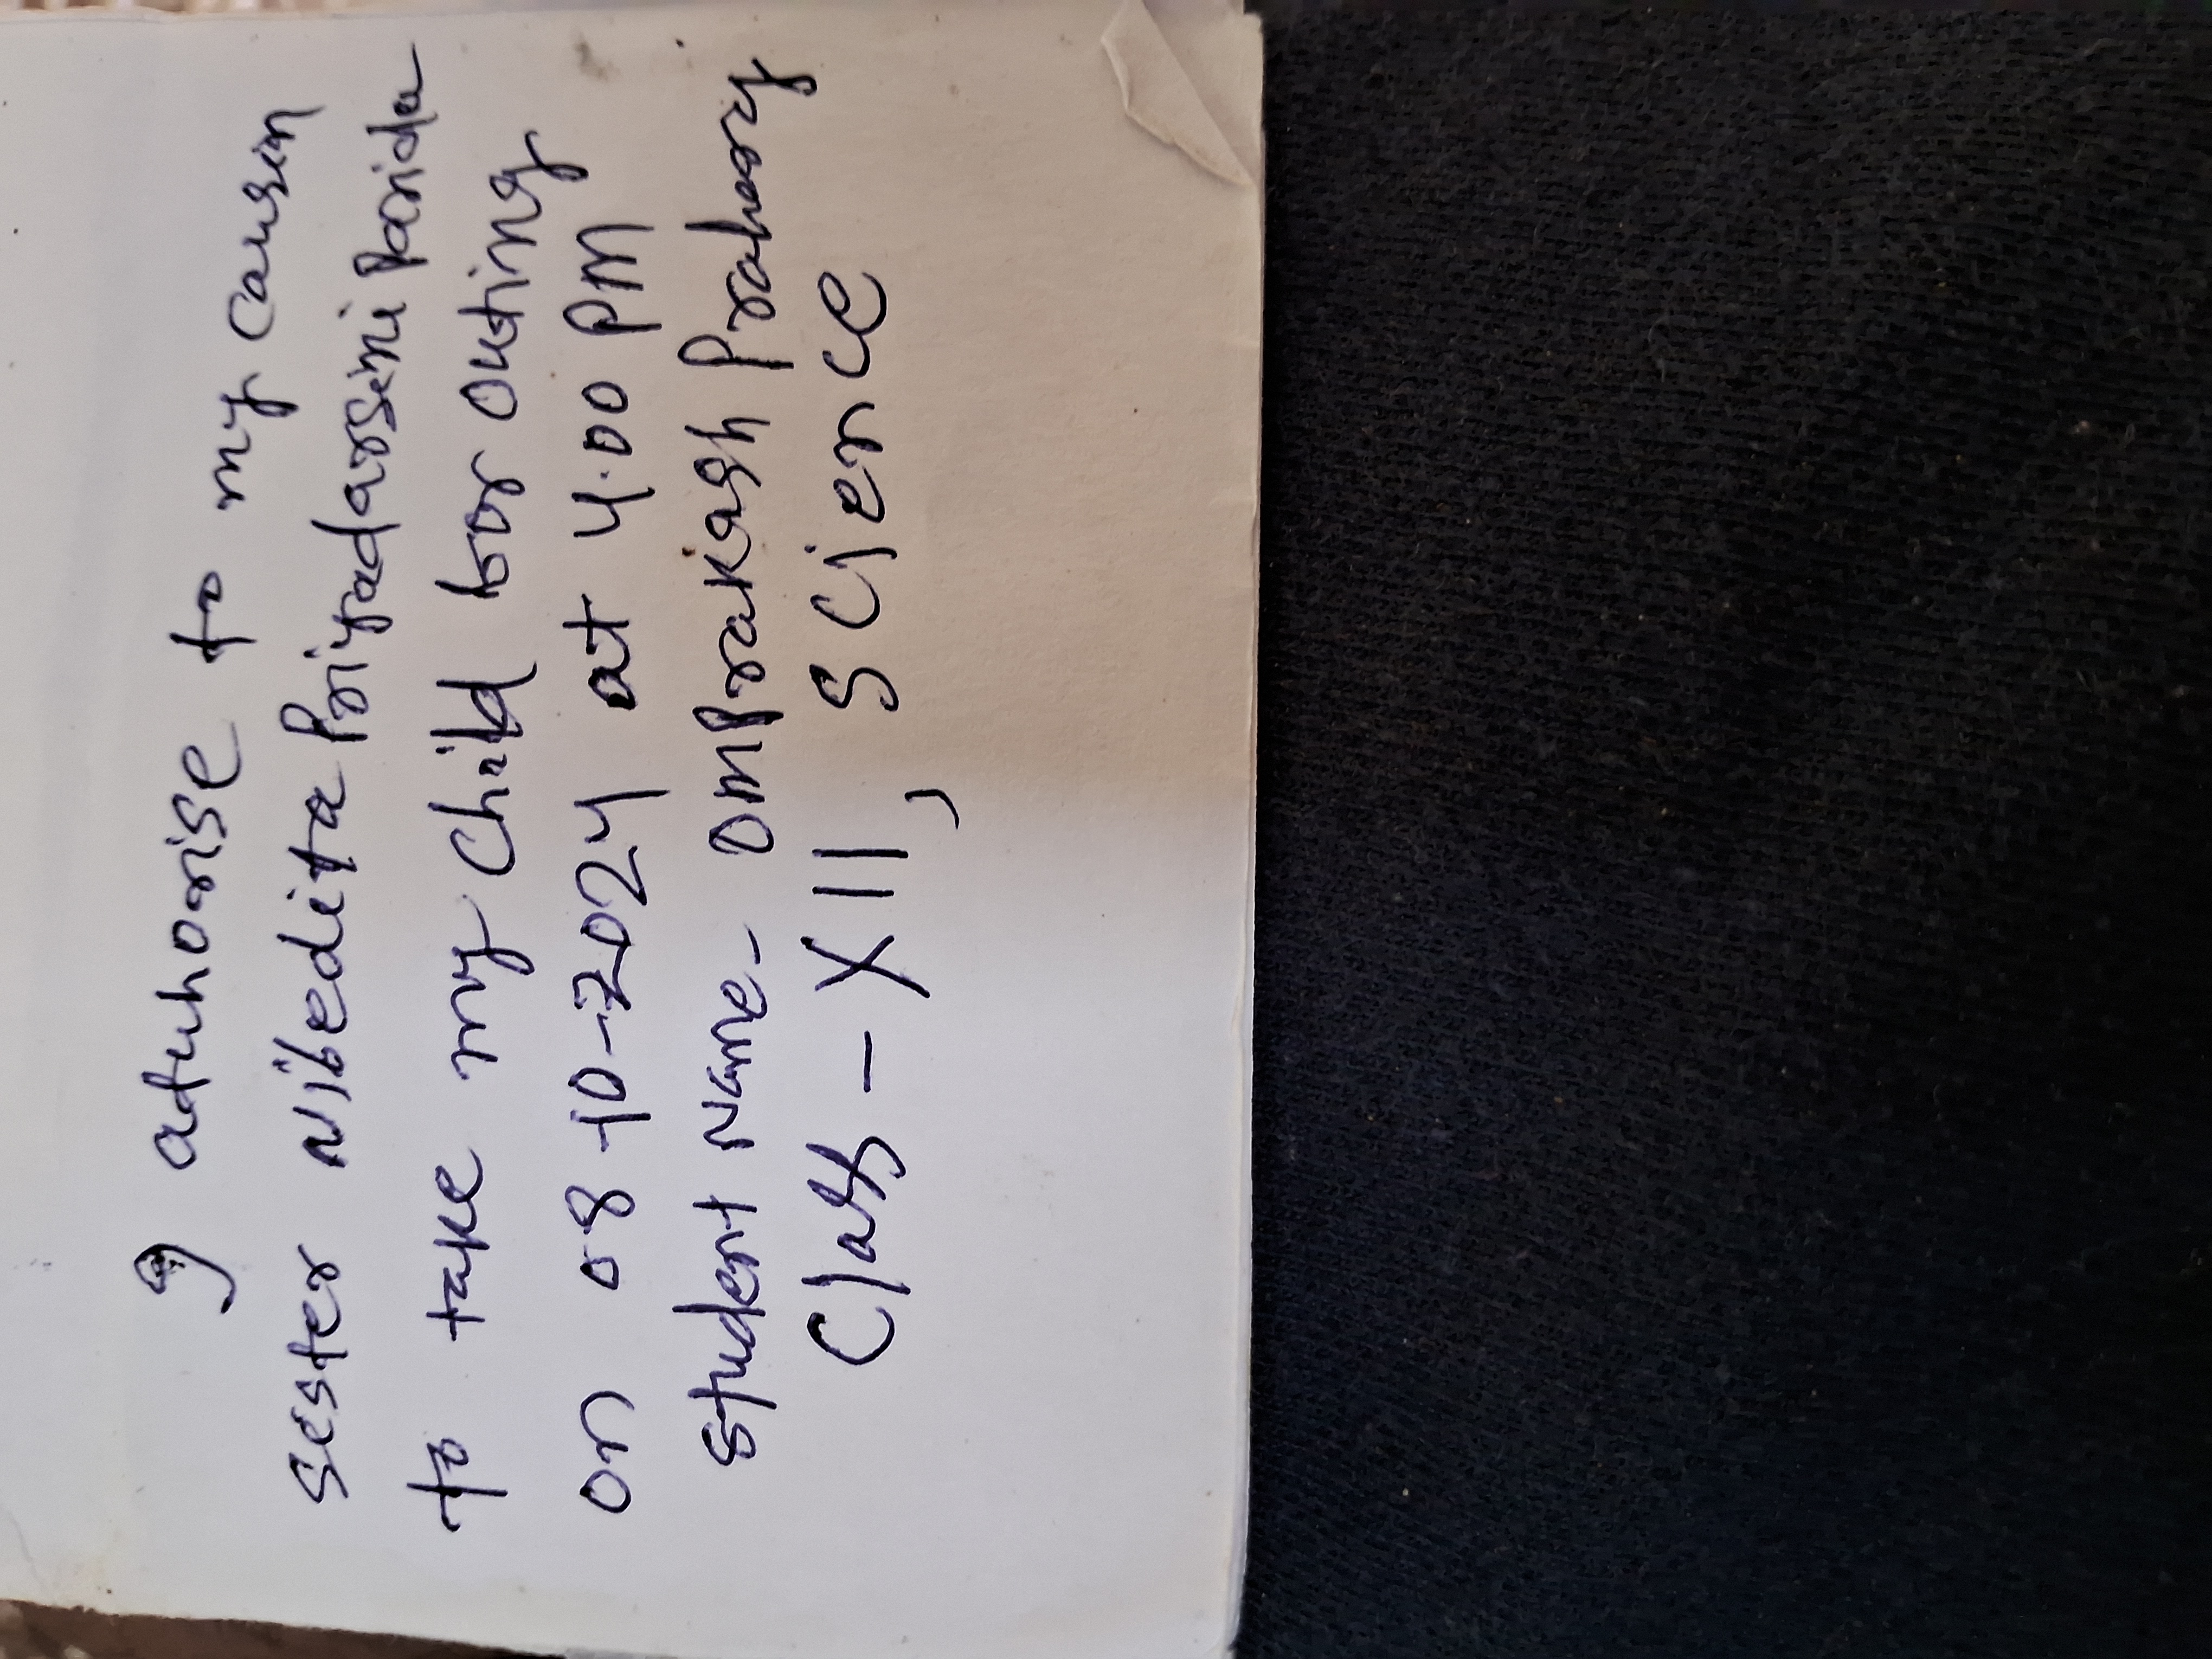 I autuhorise to my causin
sester Nibedita Priyadarseni Parida
to take my child for outing
on 08-10-2024 at 4.00 PM
Student Name - Omprakash Praharaj
Class - XII, Science